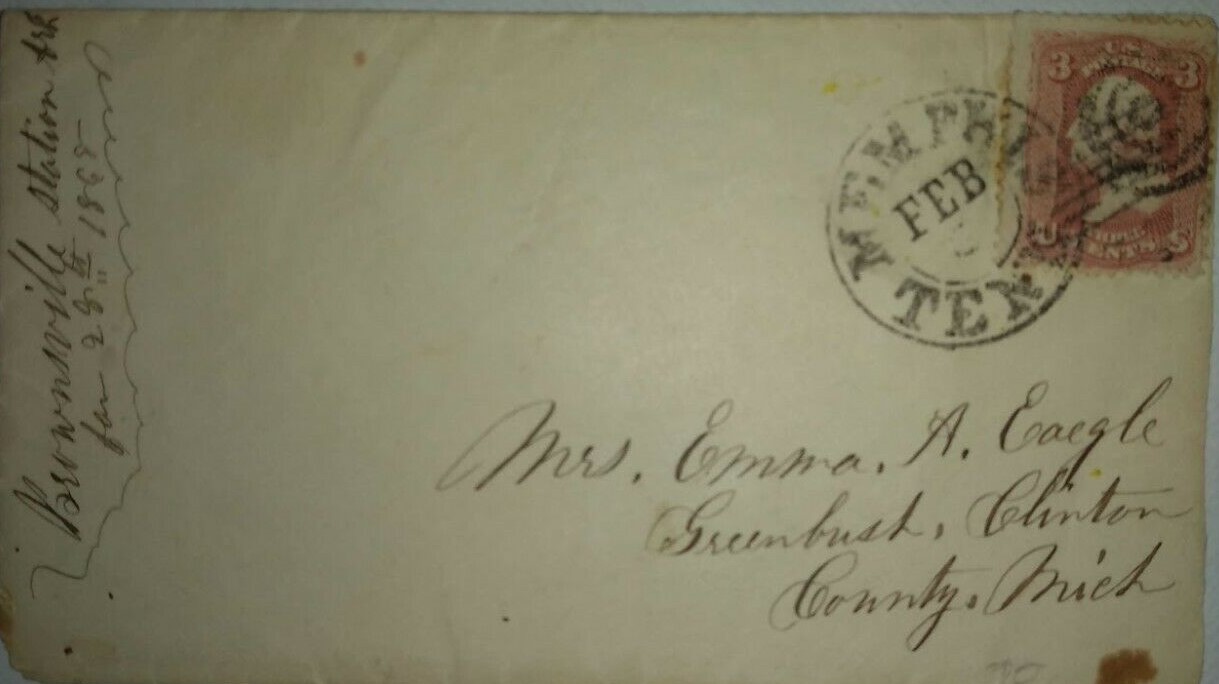 Brownsville Station Ark
Jan 28th 1865
MEMPHIS
FEB
TEN
3 U.S. POSTAGE 3
U S
CENTS
Mrs. Emma. A. Eaegle
Greenbush, Clinton
County. Mich